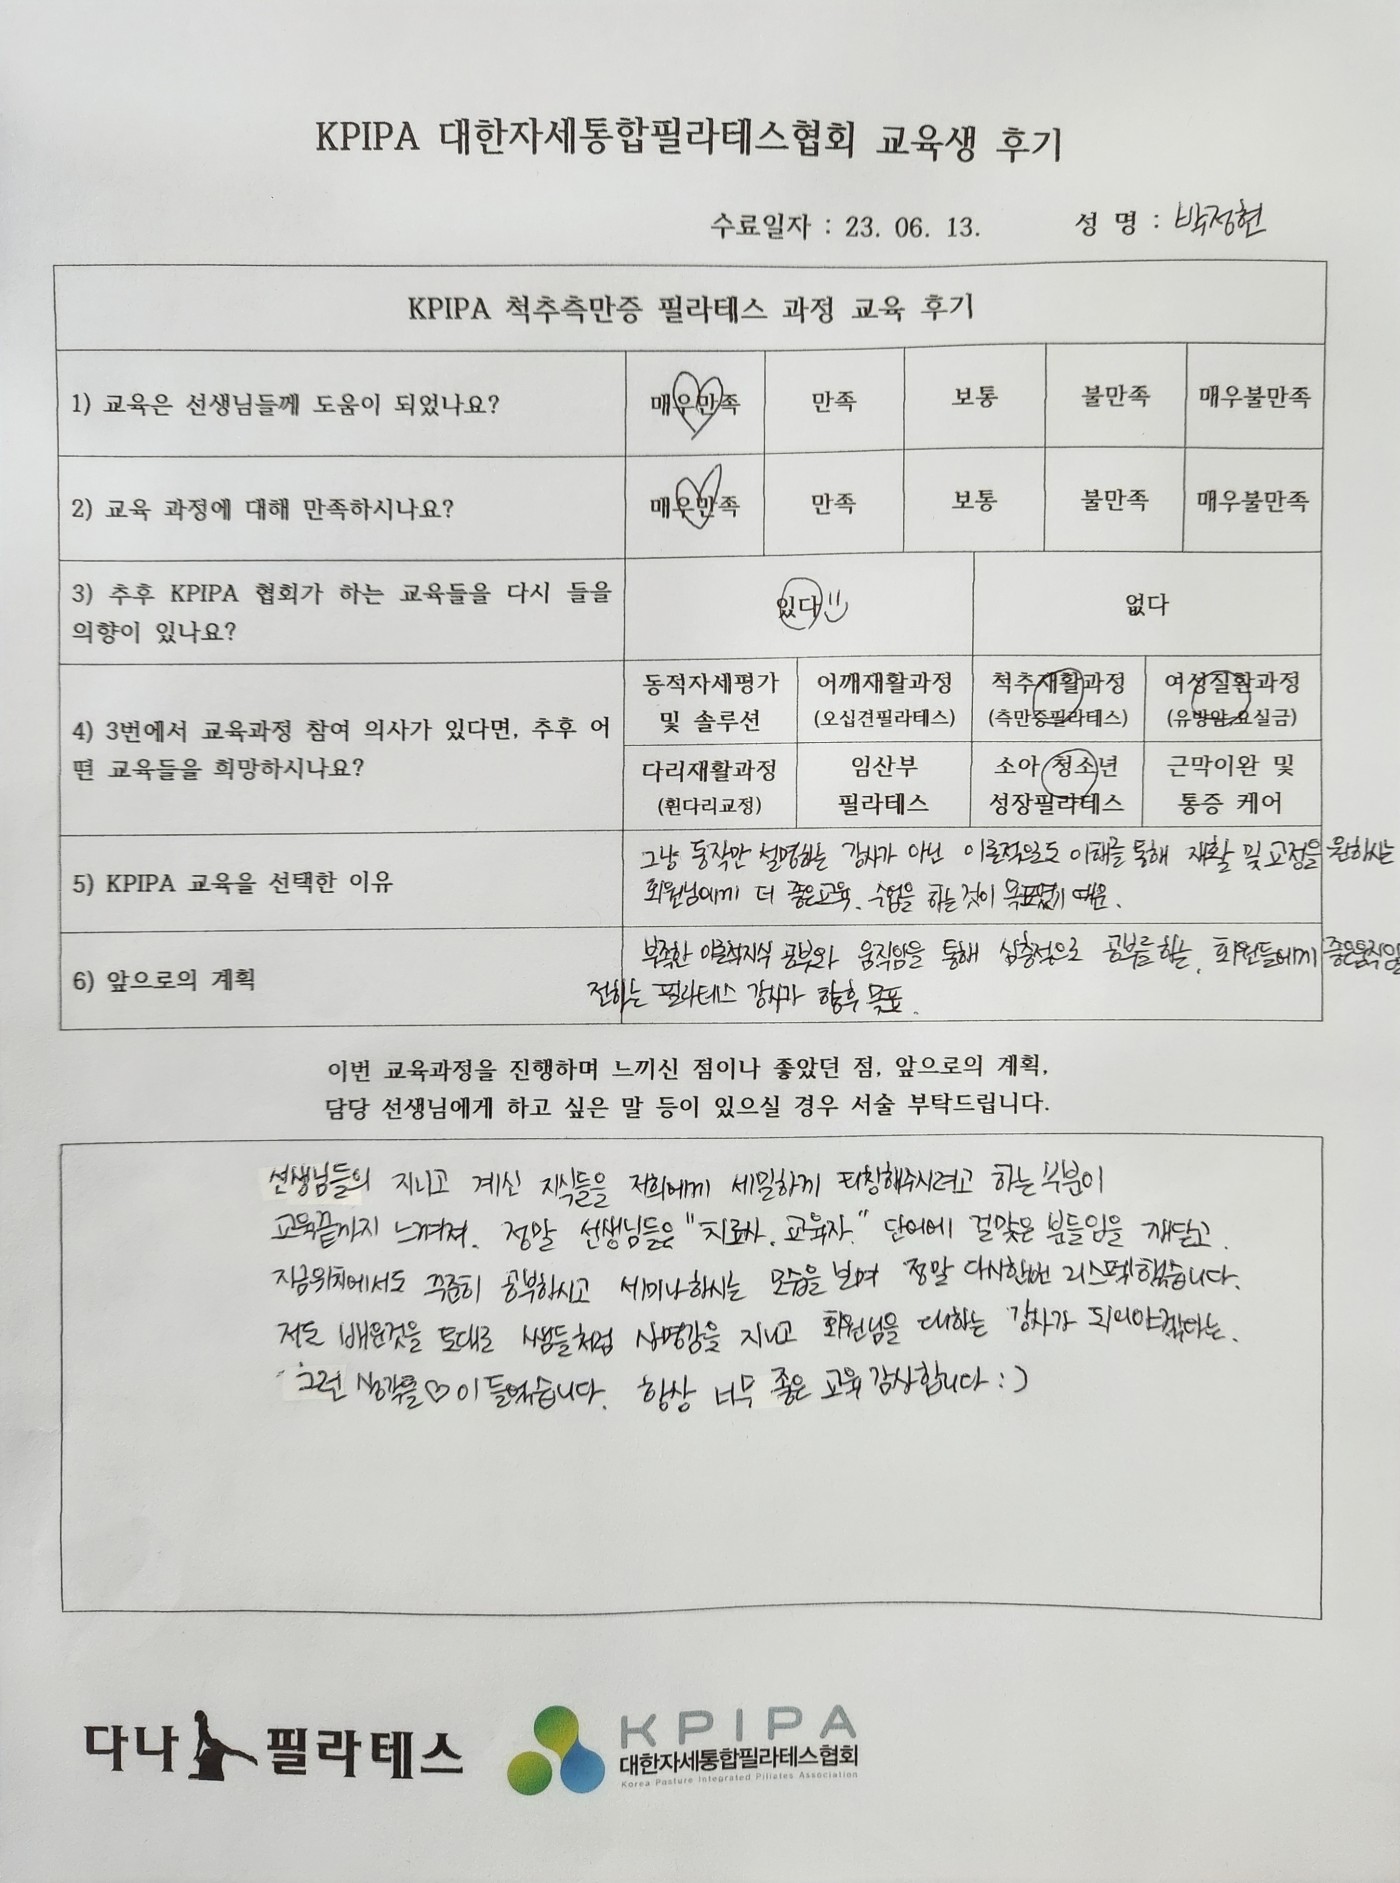 KPIPA 대한자세통합필라테스협회 교육생 후기
수료일자 : 23. 06. 13. 성 명 : 박정현
KPIPA 척추측만증 필라테스 과정 교육 후기
1) 교육은 선생님들께 도움이 되었나요? 매우만족 만족 보통 불만족 매우불만족
2) 교육 과정에 대해 만족하시나요? 매우만족 만족 보통 불만족 매우불만족
3) 추후 KPIPA 협회가 하는 교육들을 다시 들을
의향이 있나요?
있다 없다
4) 3번에서 교육과정 참여 의사가 있다면, 추후 어
떤 교육들을 희망하시나요?
동적자세평가 어깨재활과정 척추재활과정 여성질환과정
및 솔루션 (오십견필라테스) (측만증필라테스) (유방암,요실금)
다리재활과정 임산부 소아 청소년 근막이완 및
(휜다리교정) 필라테스 성장필라테스 통증 케어
5) KPIPA 교육을 선택한 이유
그냥 동작만 설명하는 강사가 아닌 이론적으로 이해를 통해 재활 및 교정을 원하시는
회원님에게 더 좋은교육, 수업을 하는것이 목표였기 때문.
6) 앞으로의 계획
부족한 이론적지식 공부와 움직임을 통해 심층적으로 공부를하는, 회원들에게 좋은움직임
전하는 필라테스 강사가 향후 목표.
이번 교육과정을 진행하며 느끼신 점이나 좋았던 점, 앞으로의 계획,
담당 선생님에게 하고 싶은 말 등이 있으실 경우 서술 부탁드립니다.
선생님들의 지니고 계신 지식들을 저희에게 세밀하게 티칭해주시려고 하는 부분이
교육끝까지 느껴져. 정말 선생님들은 "치료사, 교육자." 단어에 걸맞은 분들임을 깨닫고.
지금위치에서도 꾸준히 공부하시고 세미나하시는 모습을 보며 정말 다시한번 리스펙했습니다.
저도 배운것을 토대로 쌤들처럼 사명감을 지니고 회원님을 대하는 강사가 되어야겠다는.
그런 생각들♡이 들었습니다. 항상 너무 좋은 교육 감사합니다 : )
다나 필라테스
KPIPA
대한자세통합필라테스협회
Korea Posture Integrated Pilates Association